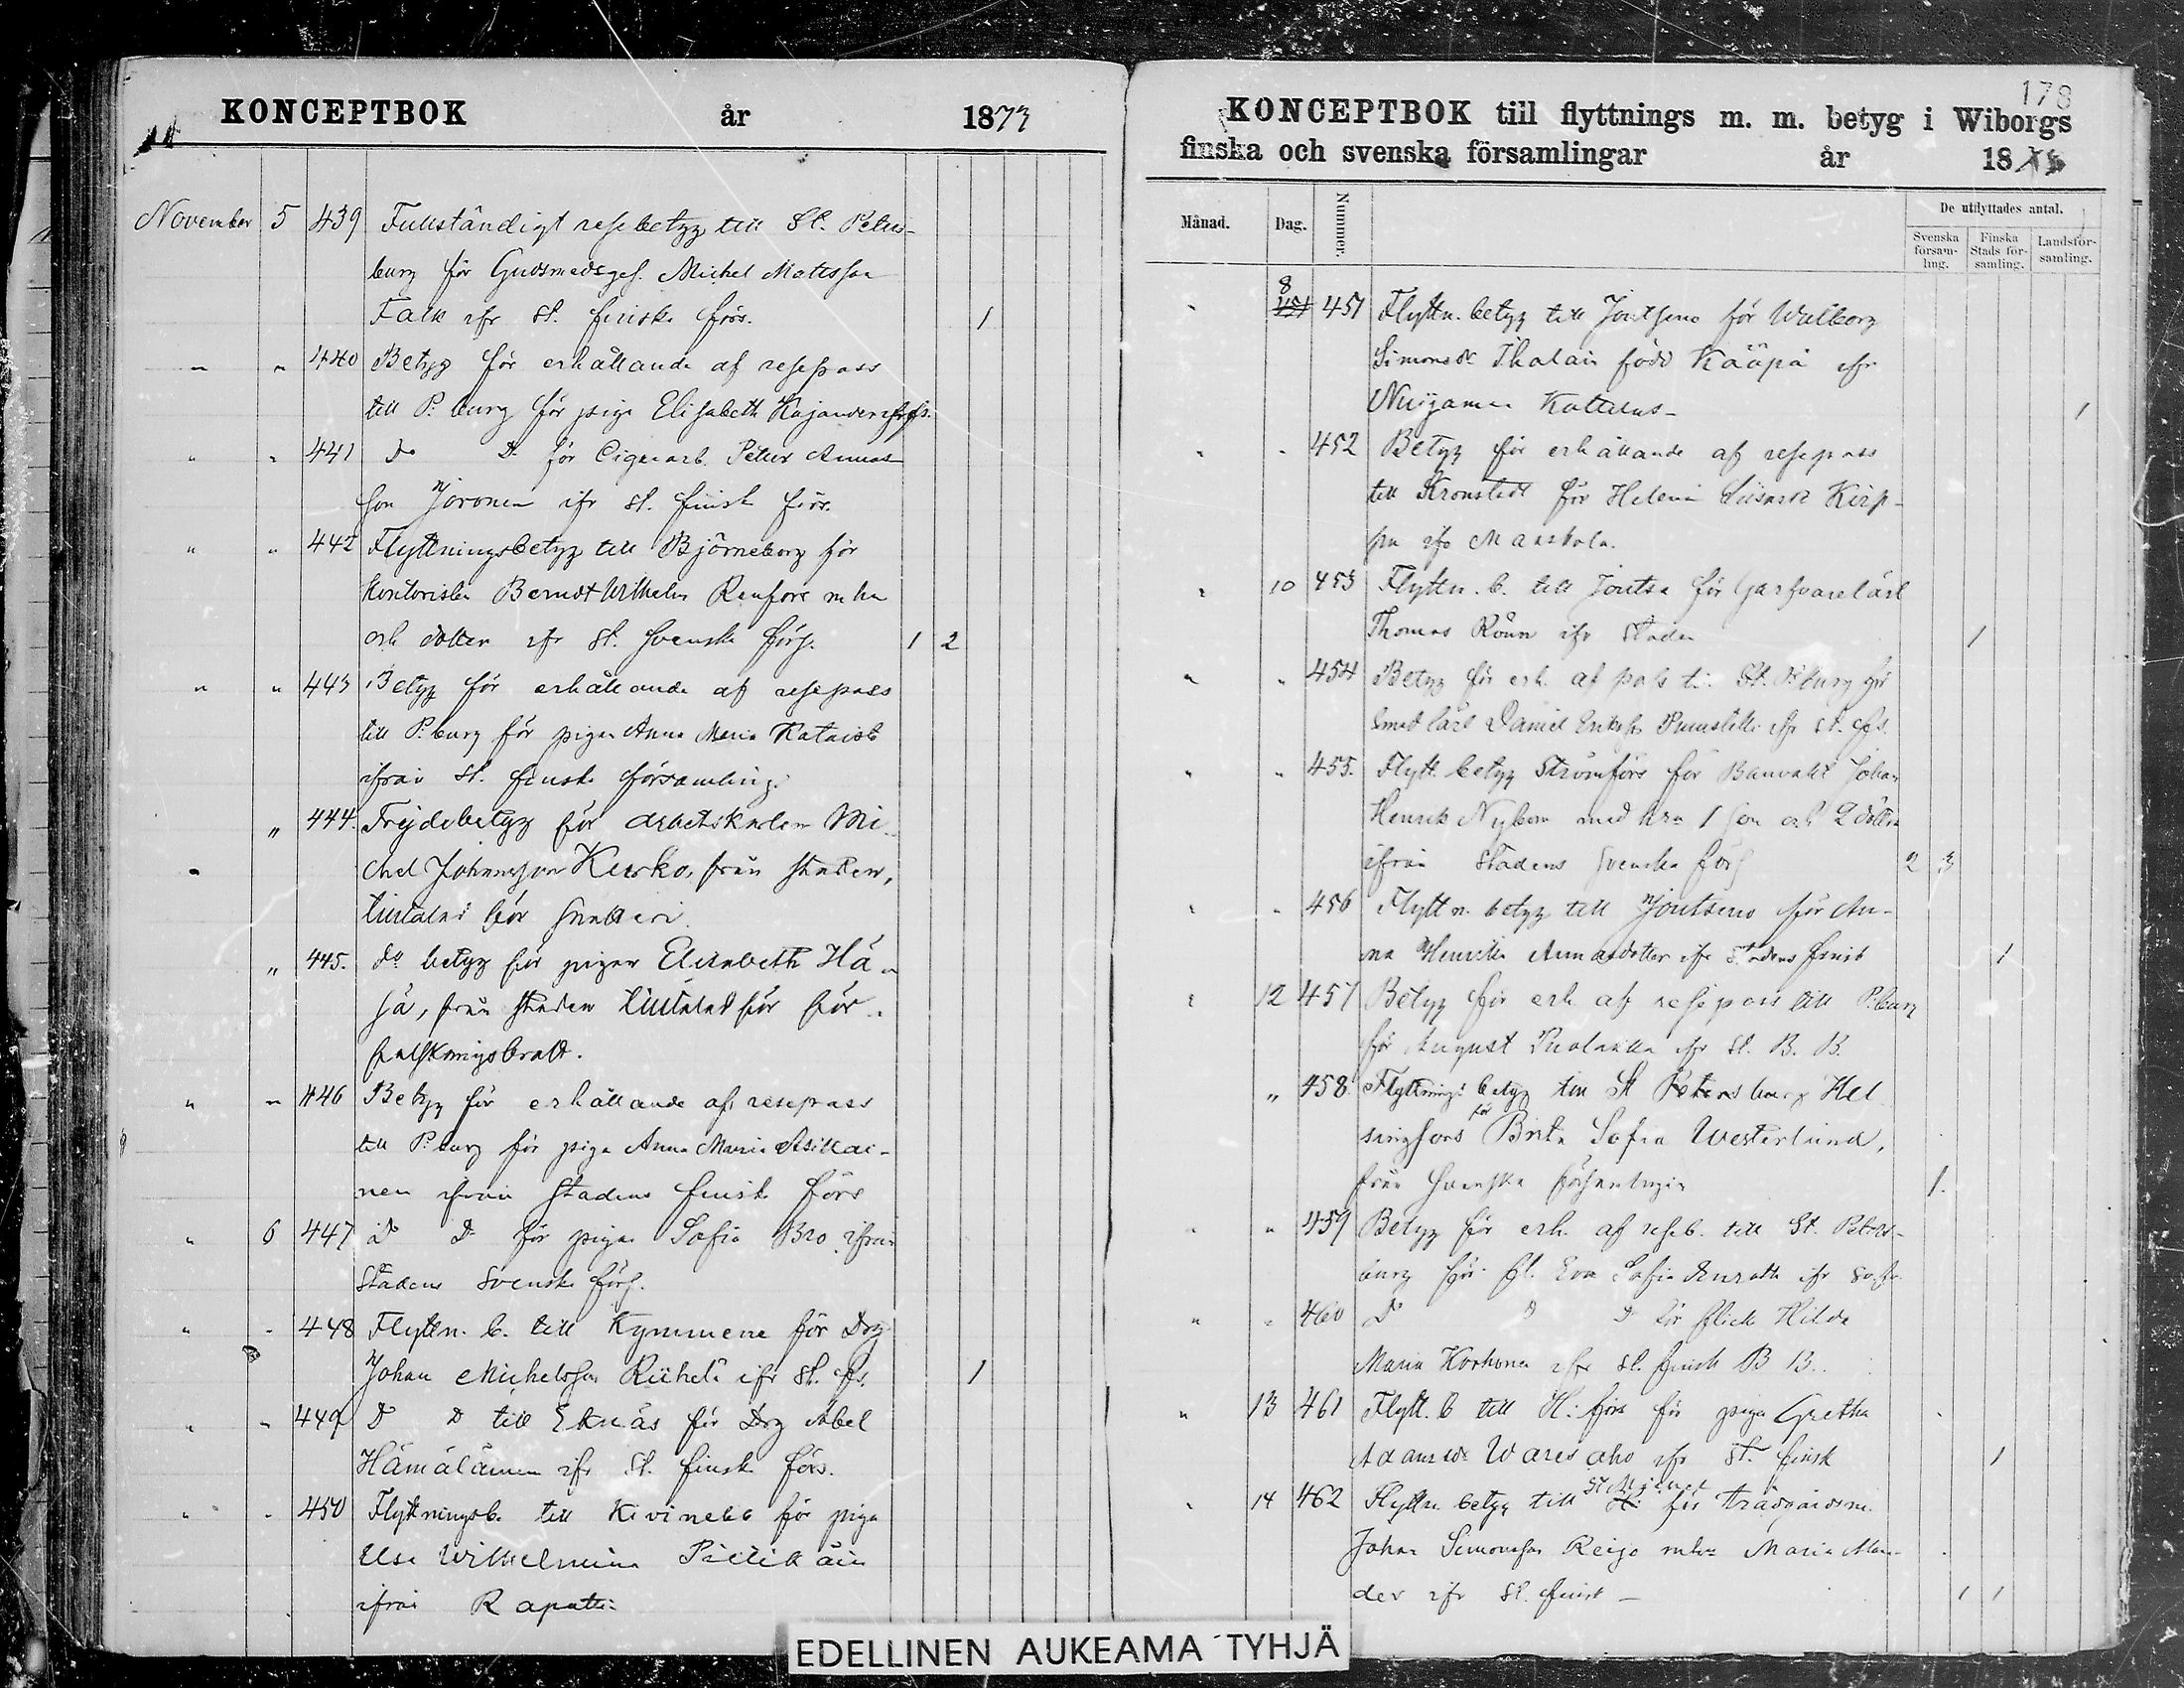 KONCEPTBOK år 1873
November 5 439 Fullständigt resebetyg till St. Peters-
burg för Gudsmedsges. Michel Mattsson
Falk ifr St. finska förs. 1
" " 440 Betyg för erhållande af resepass
till P:burg för piga Elisabeth Kajander
" " 441 Do Do för Cigararb. Petter Annas-
son Joronen ifr st. finsk förs.
" " 442 Flyttningsbetyg till Björneborg för
Kontoristen Berndt Wilhelm Renfors m hu
och dotter ifr St. Svenska förs. 1 2
" " 443 Betyg för erhållande af resepass
till P:burg för pigan Anna Maria
ifrån St. finska församling.
" 444. Frejdebetyg för arbetskarlen Mi-
chel Johansson Kurko, från staden,
tilltalad för snatteri
" 445. do betyg för pigan Elisabeth Hä-
jä, från staden tilltalad för för-
falskningsbrott.
" " 446 Betyg för erhållande af resepass
till P:burg för piga Anna Maria Asikai-
nen ifrån Stadens finsk förs
" 6 447 Do Do för pigan Sofia Bro ifrån
Stadens Svenska förs.
" " 448 Flyttn. b. till Kymmene för Drg
Johan Michelsson Riihelä ifr St. fs. 1
" " 449 Do Do till Ekenäs för Drg Abel
Hämäläinen ifr St. finsk förs.
" " 450 Flyttningsb. till Kivinebb för piga
Ulsa Wilhelmina
ifrån Rapatti
178
KONCEPTBOK till flyttnings m. m. betyg i Wiborgs
finska och svenska församlingar år 18
Månad. Dag. Nummer. De utflyttades antal.
Svenska församling. Finska Stads församling. Landsförsamling.
" 8 451 Flyttn. betyg till Joutseno för Walborg
Simonsdr Ihalain född Kääpä ifr
Nuijamaa 1
" " 452 Betyg för erhållande af resepass
till Kronstadt för Helena Kirp-
pu ifr Maaskola.
" 10 453 Flyttn. b. till Joutsa för Garfvarelärl
Thomas Rönn ifr Staden 1
" " 454 Betyg för erh. af pass ti. St. P:burg för
smed lärl Daniel Eriksson ifr St. fs.
" " 455. Flytt. betyg Strömfors för Banvakt Johan
Henrik Nybom med hru 1 son och 2 döttra
ifrån Stadens Svenska förs 2 3
" " 456 Flyttn. betyg till Joutseno för An-
na Henrika Annasdotter ifr Stadens finsk 1
" 12 457 Betyg för erh af resepass till P:burg
för August ifr St. B. B.
" 458. Flyttnings betyg till St Petersburg Hel
singfors för Brita Sofia Westerlund,
från Svenska församlingen 1.
" " 459 Betyg för erh. af reseb. till St. Peters-
burg för fl. Eva Sofia ifr
" " 460 Do Do Do för flick Hilda
Maria Korhonen ifr St. finsk B B.
" 13 461 Flytt. b till H:fors för piga Gretha
Adamsdr Waresaho ifr St. finsk 1
" 14 462 Flyttn. betyg till St Michel för trädgårdsm.
Johan Simonsson Reijo mhu Maria Man-
der ifr St. finsk 1 1
EDELLINEN AUKEAMA TYHJÄ